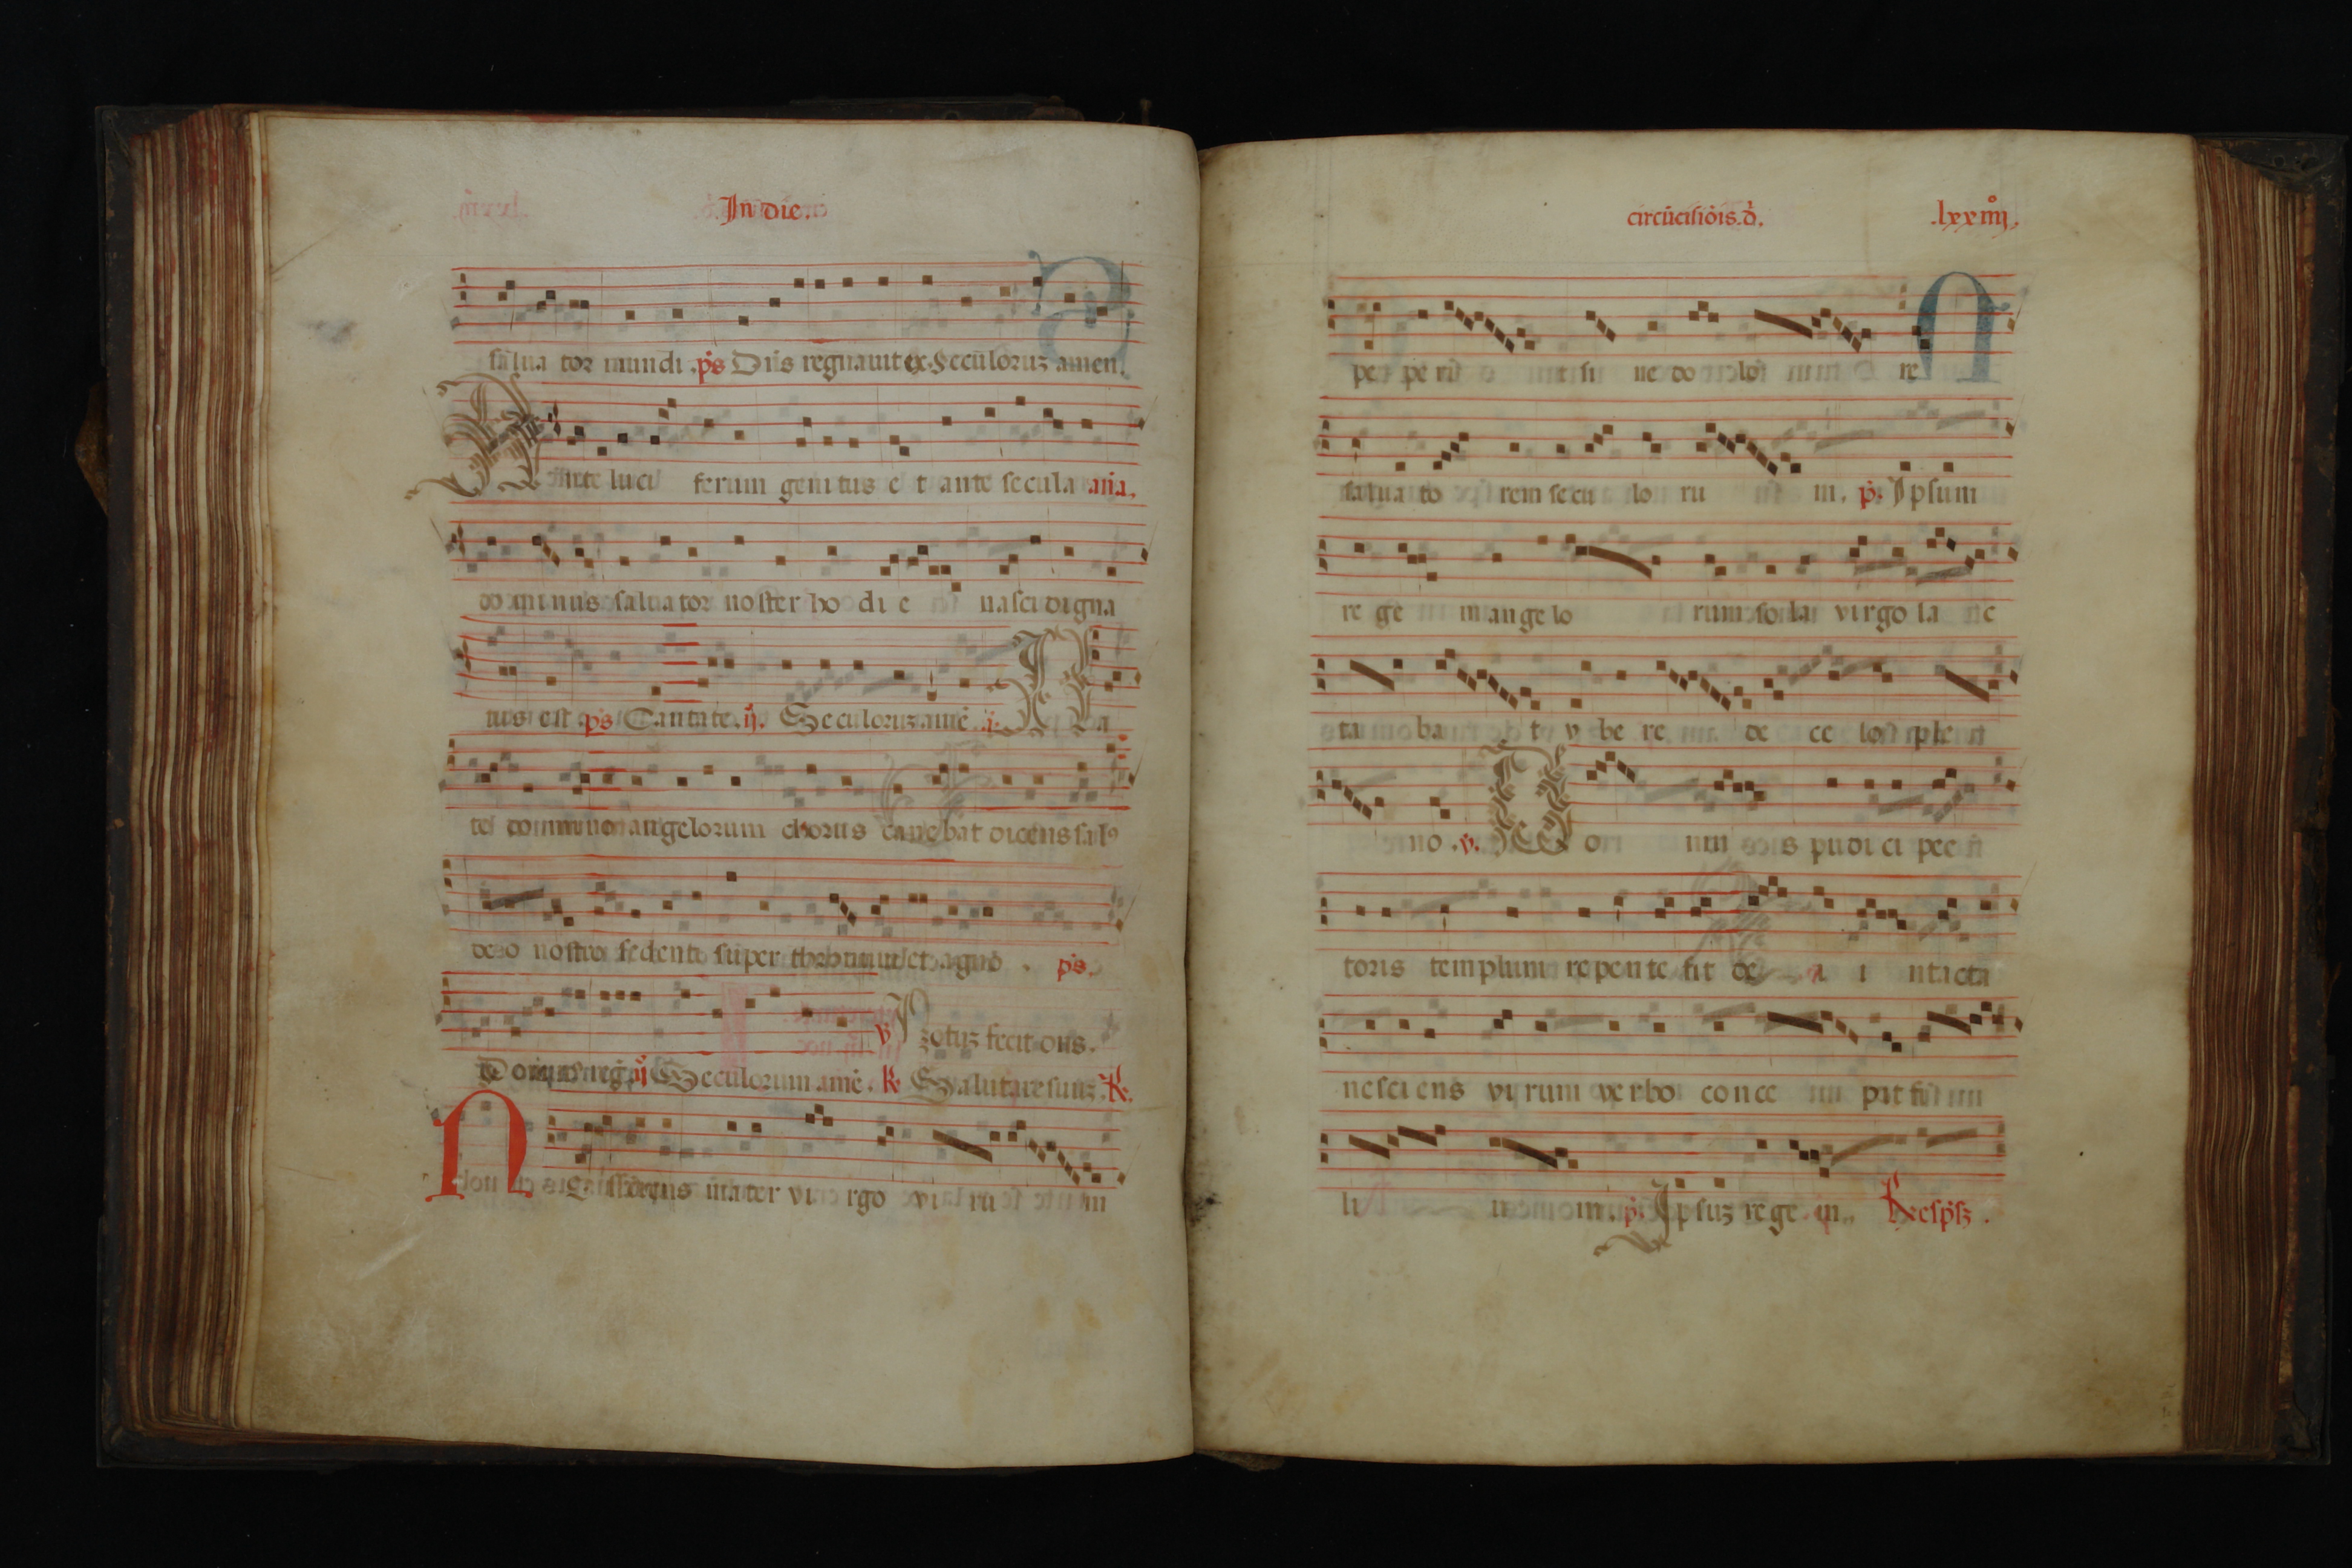 In die.
salua tor mundi ps Dns regnauit ex. Seculoruz amen.
Ante luci ferum genitus e t ante secula ana.
dominus saluator noster ho di e nasci digna
tus est ps Cantate. ij. Seculoruz ame i. Na
to domino angelorum chorus canebat dicens sal9
deo nostro sedenti super thronum et agno. ps.
v zotuz fecit dns.
Dominus reg. Seculorum ame. R Salutare suuz. R.
Nesciens mater vi rgo vi ru m
circucisiois. d. .lxxiiij.
pe pe rit si ne do lo re
salua to rem secu lo ru m. p. Ipsum
re ge m angelo rum sola virgo la c
ta ba t v be re de ce lo ple
no .v. Do mus pudici pec
toris templum repente fit de i intacta
nesciens virum verbo conce pit fi
li um. p. Ipsuz rege m. Respsz.